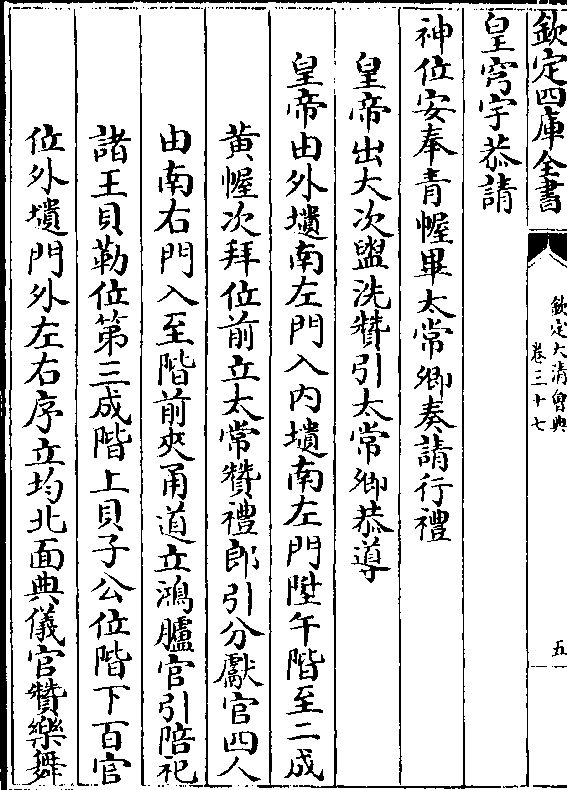 欽定四庫全書
欽定大清會典
卷三十七
五
皇穹宇恭請
神位安奉青幄畢太常卿奏請行禮
皇帝出大次盥洗贊引太常卿恭導
皇帝由外壝南左門入內壝南左門陞午階至二成
黃幄次拜位前立太常贊禮郎引分獻官四人
由南右門入至階前夾甬道立鴻臚官引陪祀
諸王貝勒位第三成階上貝子公位階下百官
位外壝門外左右序立均北面典儀官贊樂舞